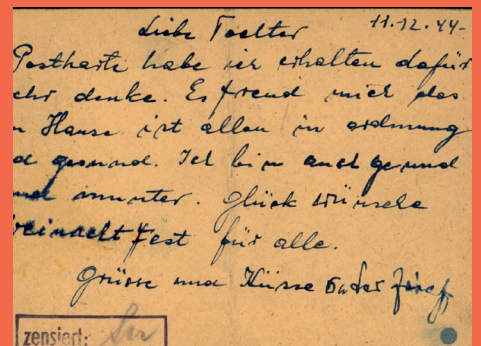 11.12.44-
Liebe Toolter
Postkarte habe ich erhalten dafür
ehr denke. Es freud mich das
n Hause ist allen in ordnung
d gesund. Ich bin auch gesund
nd munter. Glück wünsche
weinacht Fest für alle.
Grüsse und Küsse Vater Josef
zensiert: